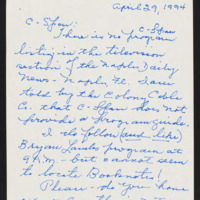 April 29, 1994
C-Span:
There is no C-Span program
listing in the television
section of the Naples Daily
News - Naples, Fl. I am
told by the Colony Cable
Co. that C-Span does not
provide a program guide.
I do follow (and like)
Bryan Lambs program at
9 A.M. - but cannot seem
to locate Booknotes!
Please - do you have